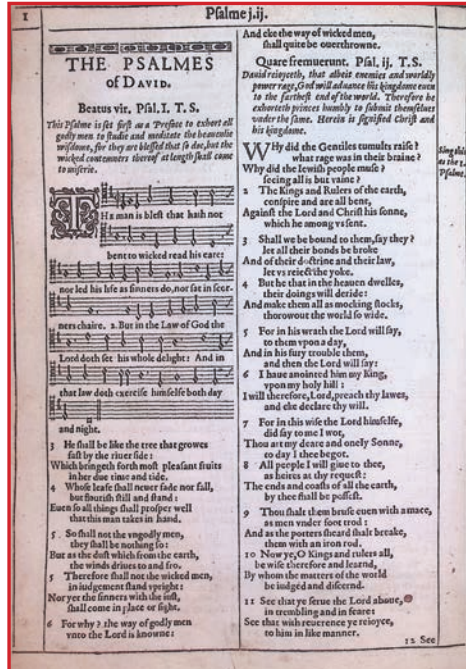 1
Psalme j.ij.
THE PSALMES
of DAVID.
Beatus vir. Psal. I. T. S.
This Psalme is set first as a Preface to exhort all
godly men to studie and meditate the heauenlie
wisdome, for they are blessed that so doe, but the
wicked contemners thereof at length shall come
to miserie.
THe man is blest that hath not
bent to wicked read his eare:
nor led his life as sinners do, nor sat in scor-
ners chaire. 2. But in the Law of God the
Lord doth set his whole delight: And in
that law doth exercise himselfe both day
and night.
3 He shall be like the tree that growes
fast by the riuer side:
Which bringeth forth most pleasant fruits
in her due time and tide.
4 Whose leafe shall neuer fade nor fall,
but flourish still and stand:
Euen so all things shall prosper well
that this man takes in hand.
5 . So shall not the vngodly men,
they shall be nothing so:
But as the dust which from the earth,
the winds driues to and fro.
5 Therefore shall not the wicked men,
in iudgement stand vpright:
Nor yet the sinners with the iust,
shall come in place or sight.
6 For why? the way of godly men
vnto the Lord is knowne:
And eke the way of wicked men,
shall quite be ouerthrowne.
Quare fremuerunt. Psal. ij. T.S.
Dauid reioyceth, that albeit enemies and worldly
power rage, God will aduance his kingdome euen
to the farthest end of the world. Therefore he
exhorteth princes humbly to submit themselues
vnder the same. Herein is signified Christ and
his kingdome.
WHy did the Gentiles tumults raise?
what rage was in their braine?
Why did the Iewish people muse?
seeing all is but vaine?
Sing this
as the 1.
Psalme.
2 The Kings and Rulers of the earth,
conspire and are all bent,
Against the Lord and Christ his sonne,
which he among vs sent.
3 Shall we be bound to them, say they?
let all their bonds be broke
And of their doctrine and their law,
let vs reiect the yoke.
4 But he that in the heauen dwelles,
their doings will deride:
And make them all as mocking stocks,
thorowout the world so wide.
5 For in his wrath the Lord will say,
to them vpon a day,
And in his fury trouble them,
and then the Lord will say:
6 I haue anointed him my King,
vpon my holy hill:
I will therefore, Lord, preach thy lawes,
and eke declare thy will.
7 For in this wise the Lord himselfe,
did say to me I wot,
Thou art my deare and onely Sonne,
to day I thee begot.
8 All people I will giue to thee,
as heires at thy request:
The ends and coasts of all the earth,
by thee shall be possest.
9 Thou shalt them bruse euen with a mace,
as men vnder foot trod:
And as the potters sheard shalt breake,
them with an iron rod.
10 Now ye, O Kings and rulers all,
be wise therefore and learnd,
By whom the matters of the world
be iudged and discernd.
11 See that ye serue the Lord aboue,
in trembling and in feare:
See that with reuerence ye reioyce,
to him in like manner.
12 See